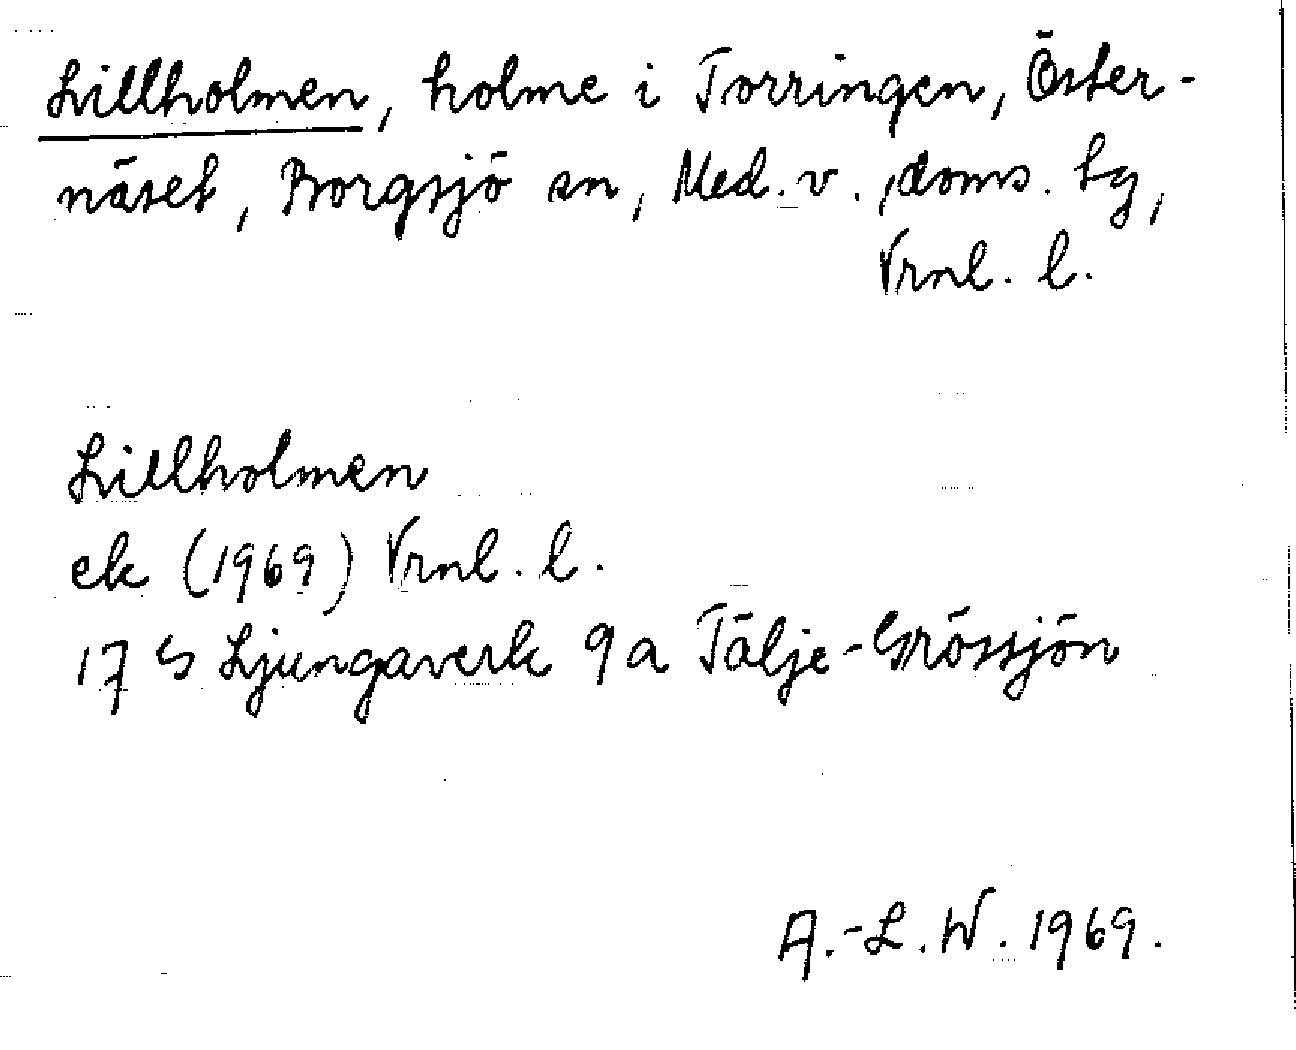 Lillholmen, holme i Torringen, Öster-
näset, Borgsjö sn, Med. v. doms. tg,
Vrnl. l.
Lillholmen
ek (1969) Vrnl. l.
17 G Ljungaverk 9 a Tälje-Grössjön
A.-L. W. 1969.